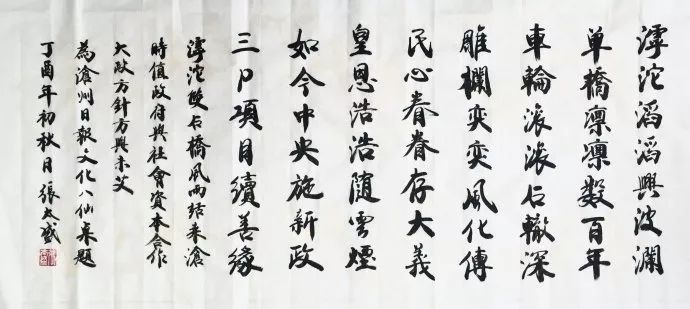 滹沱滔滔興波瀾
单橋凛凛数百年
車輪滚滚石轍深
雕欄奕奕風化傳
民心眷眷存大義
皇恩浩浩隨雲煙
如今中央施新政
三P項目續善緣
滹沱雙石橋風雨滄
時值政府與社會資本合作
大政方針方興未艾
為滄州日報文化八仙桌題
丁酉年初秋月張盛